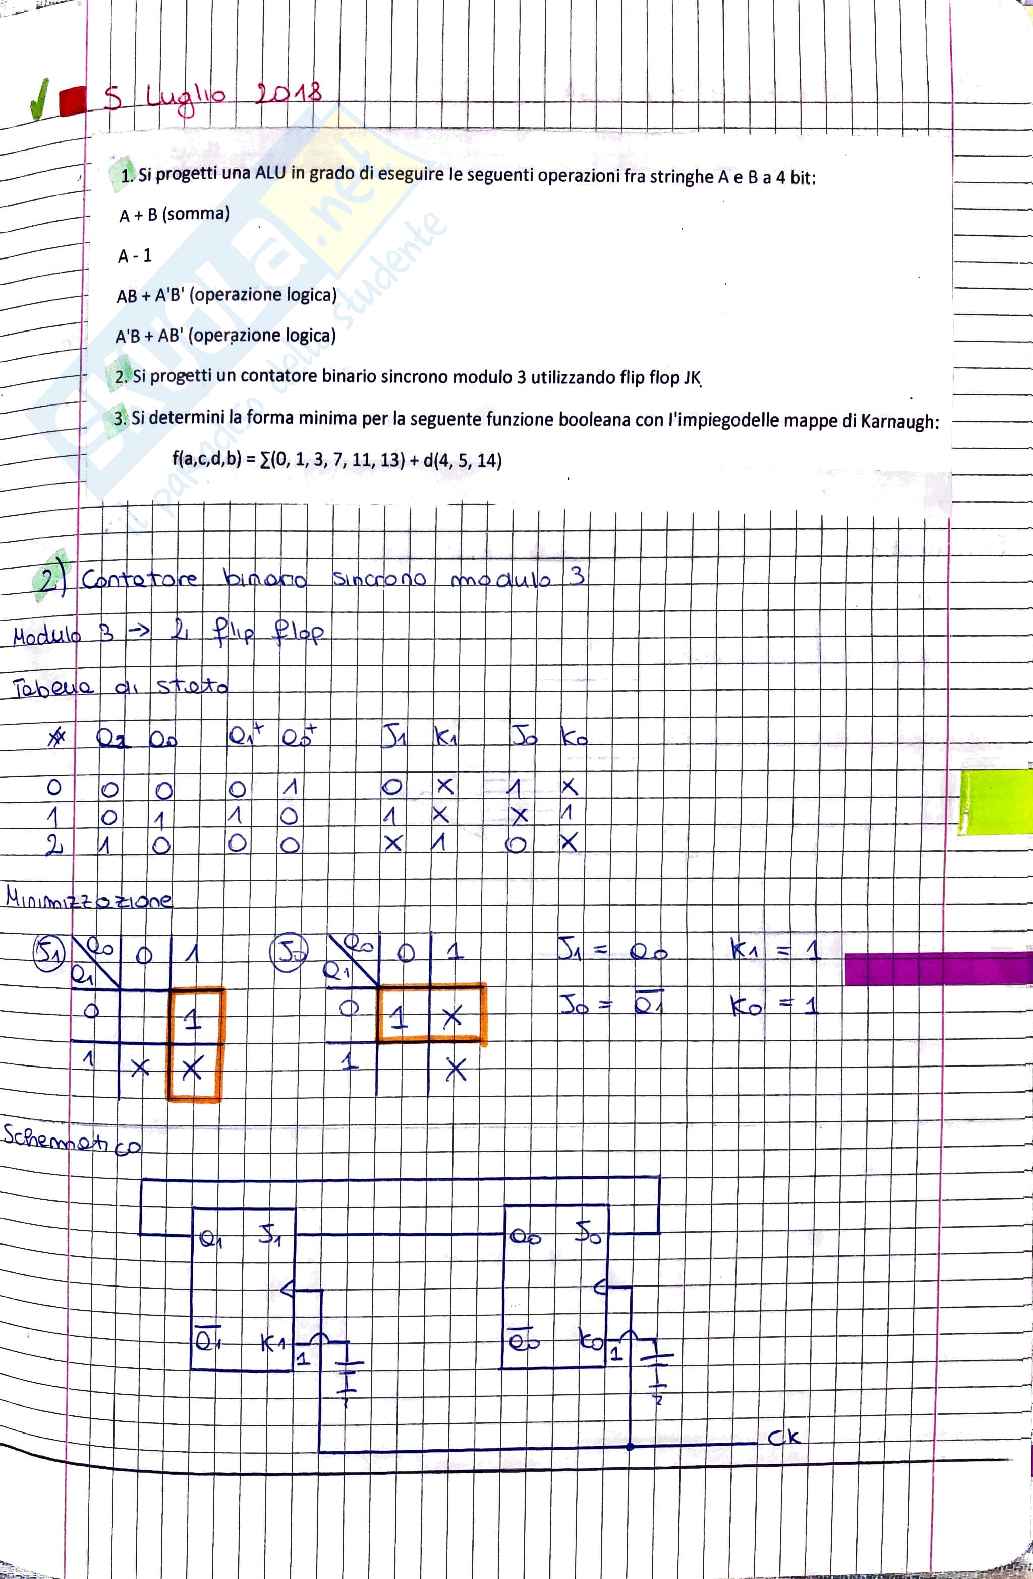 5 Luglio 2018
1. Si progetti una ALU in grado di eseguire le seguenti operazioni fra stringhe A e B a 4 bit:
A + B (somma)
A - 1
AB + A'B' (operazione logica)
A'B + AB' (operazione logica)
2. Si progetti un contatore binario sincrono modulo 3 utilizzando flip flop JK
3. Si determini la forma minima per la seguente funzione booleana con l'impiegodelle mappe di Karnaugh:
f(a,c,d,b) = ∑(0, 1, 3, 7, 11, 13) + d(4, 5, 14)
SKUOLA.net
il paradiso dello studente
2) Contatore binario sincrono modulo 3
Modulo 3 → 2 flip flop
Tabella di stato
* Q1 Q0 Q1+ Q0+ J1 K1 J0 K0
0 0 0 0 1 0 X 1 X
1 0 1 1 0 1 X X 1
2 1 0 0 0 X 1 0 X
Minimizzazione
J1 Q0 0 1 J0 Q0 0 1 J1 = Q0 K1 = 1
Q1 Q1
0 1 0 1 X J0 = Q̅1 K0 = 1
1 X X 1 X
Schematico
Q1 J1 Q0 J0
Q̅1 K1 1 Q̅0 K0 1
CK